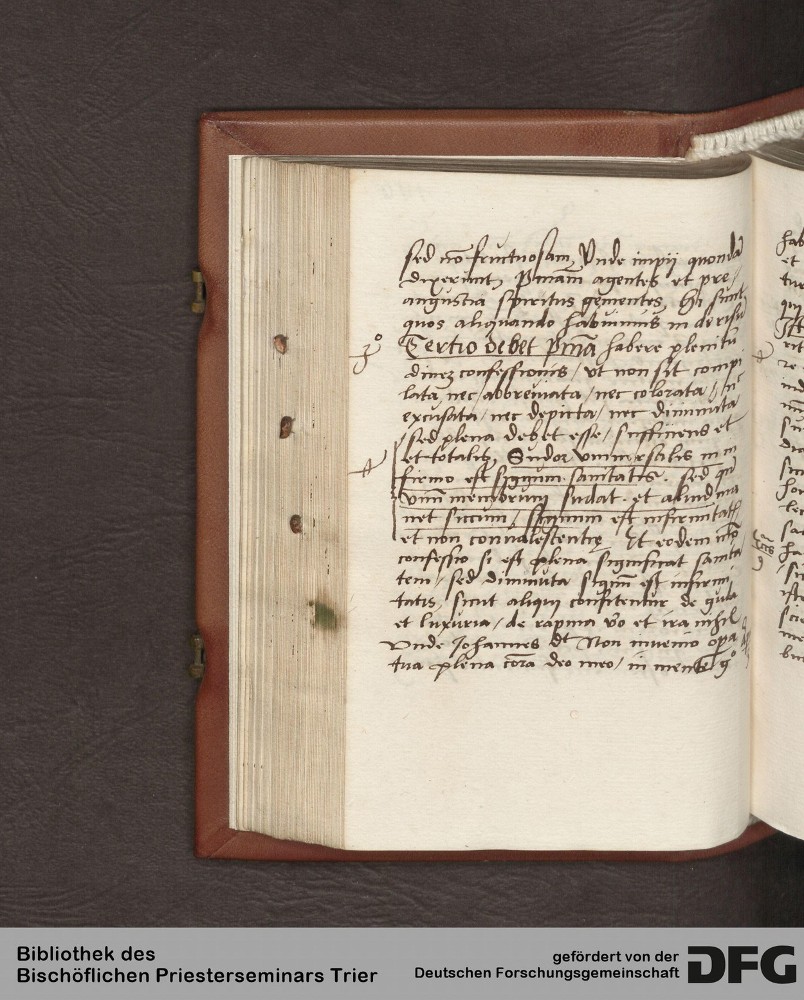 sed nō fructuosam, Vnde impij quondā
dixerunt, Pniam agentes et pre
angustia spiritus gementes, hi sunt
quos aliquando habuimus in derisū
3º
Tertio debet pnīa habere plenitu
dinez confessionis / ut non sit compi
lata, nec abbreuiata / nec colorata / nec
excusata / nec depicta / nec diminuta
sed plena debet esse / sufficiens et
et totalis, Sudor vniuersalis in in
firmo est signum sanitatis. sed
vnū membrorum sudat et aliud ma
net siccum / signum est infirmitatis
et non Et eodem mō
confessio si est plena significat sanita
tem / sed diminuta signū est infirmi
tatis, sicut aliqui confitentur de gula
et luxuria / de rapina vo et ira nihil
Vnde Johannes dt Non inuenio opa
tua plena corā deo meo / in mente gº
hab
et
Bibliothek des
Bischöflichen Priesterseminars Trier
gefördert von der
Deutschen Forschungsgemeinschaft
DFG